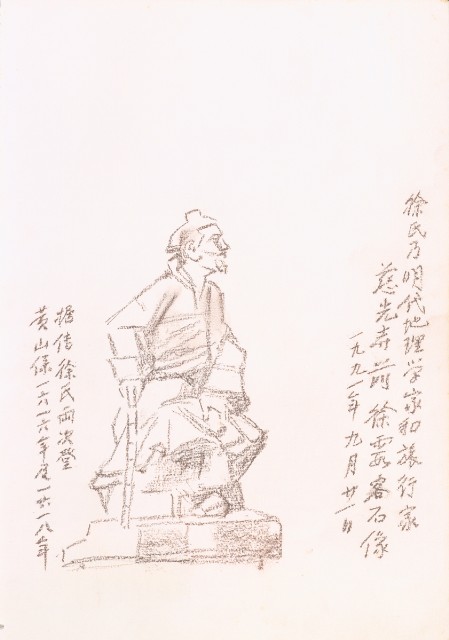 徐氏乃明代地理学家和旅行家
慈光寺前徐霞客石像
一九九一年九月廿一日
据传徐氏两次登
黄山係一六一六年及一六一八年